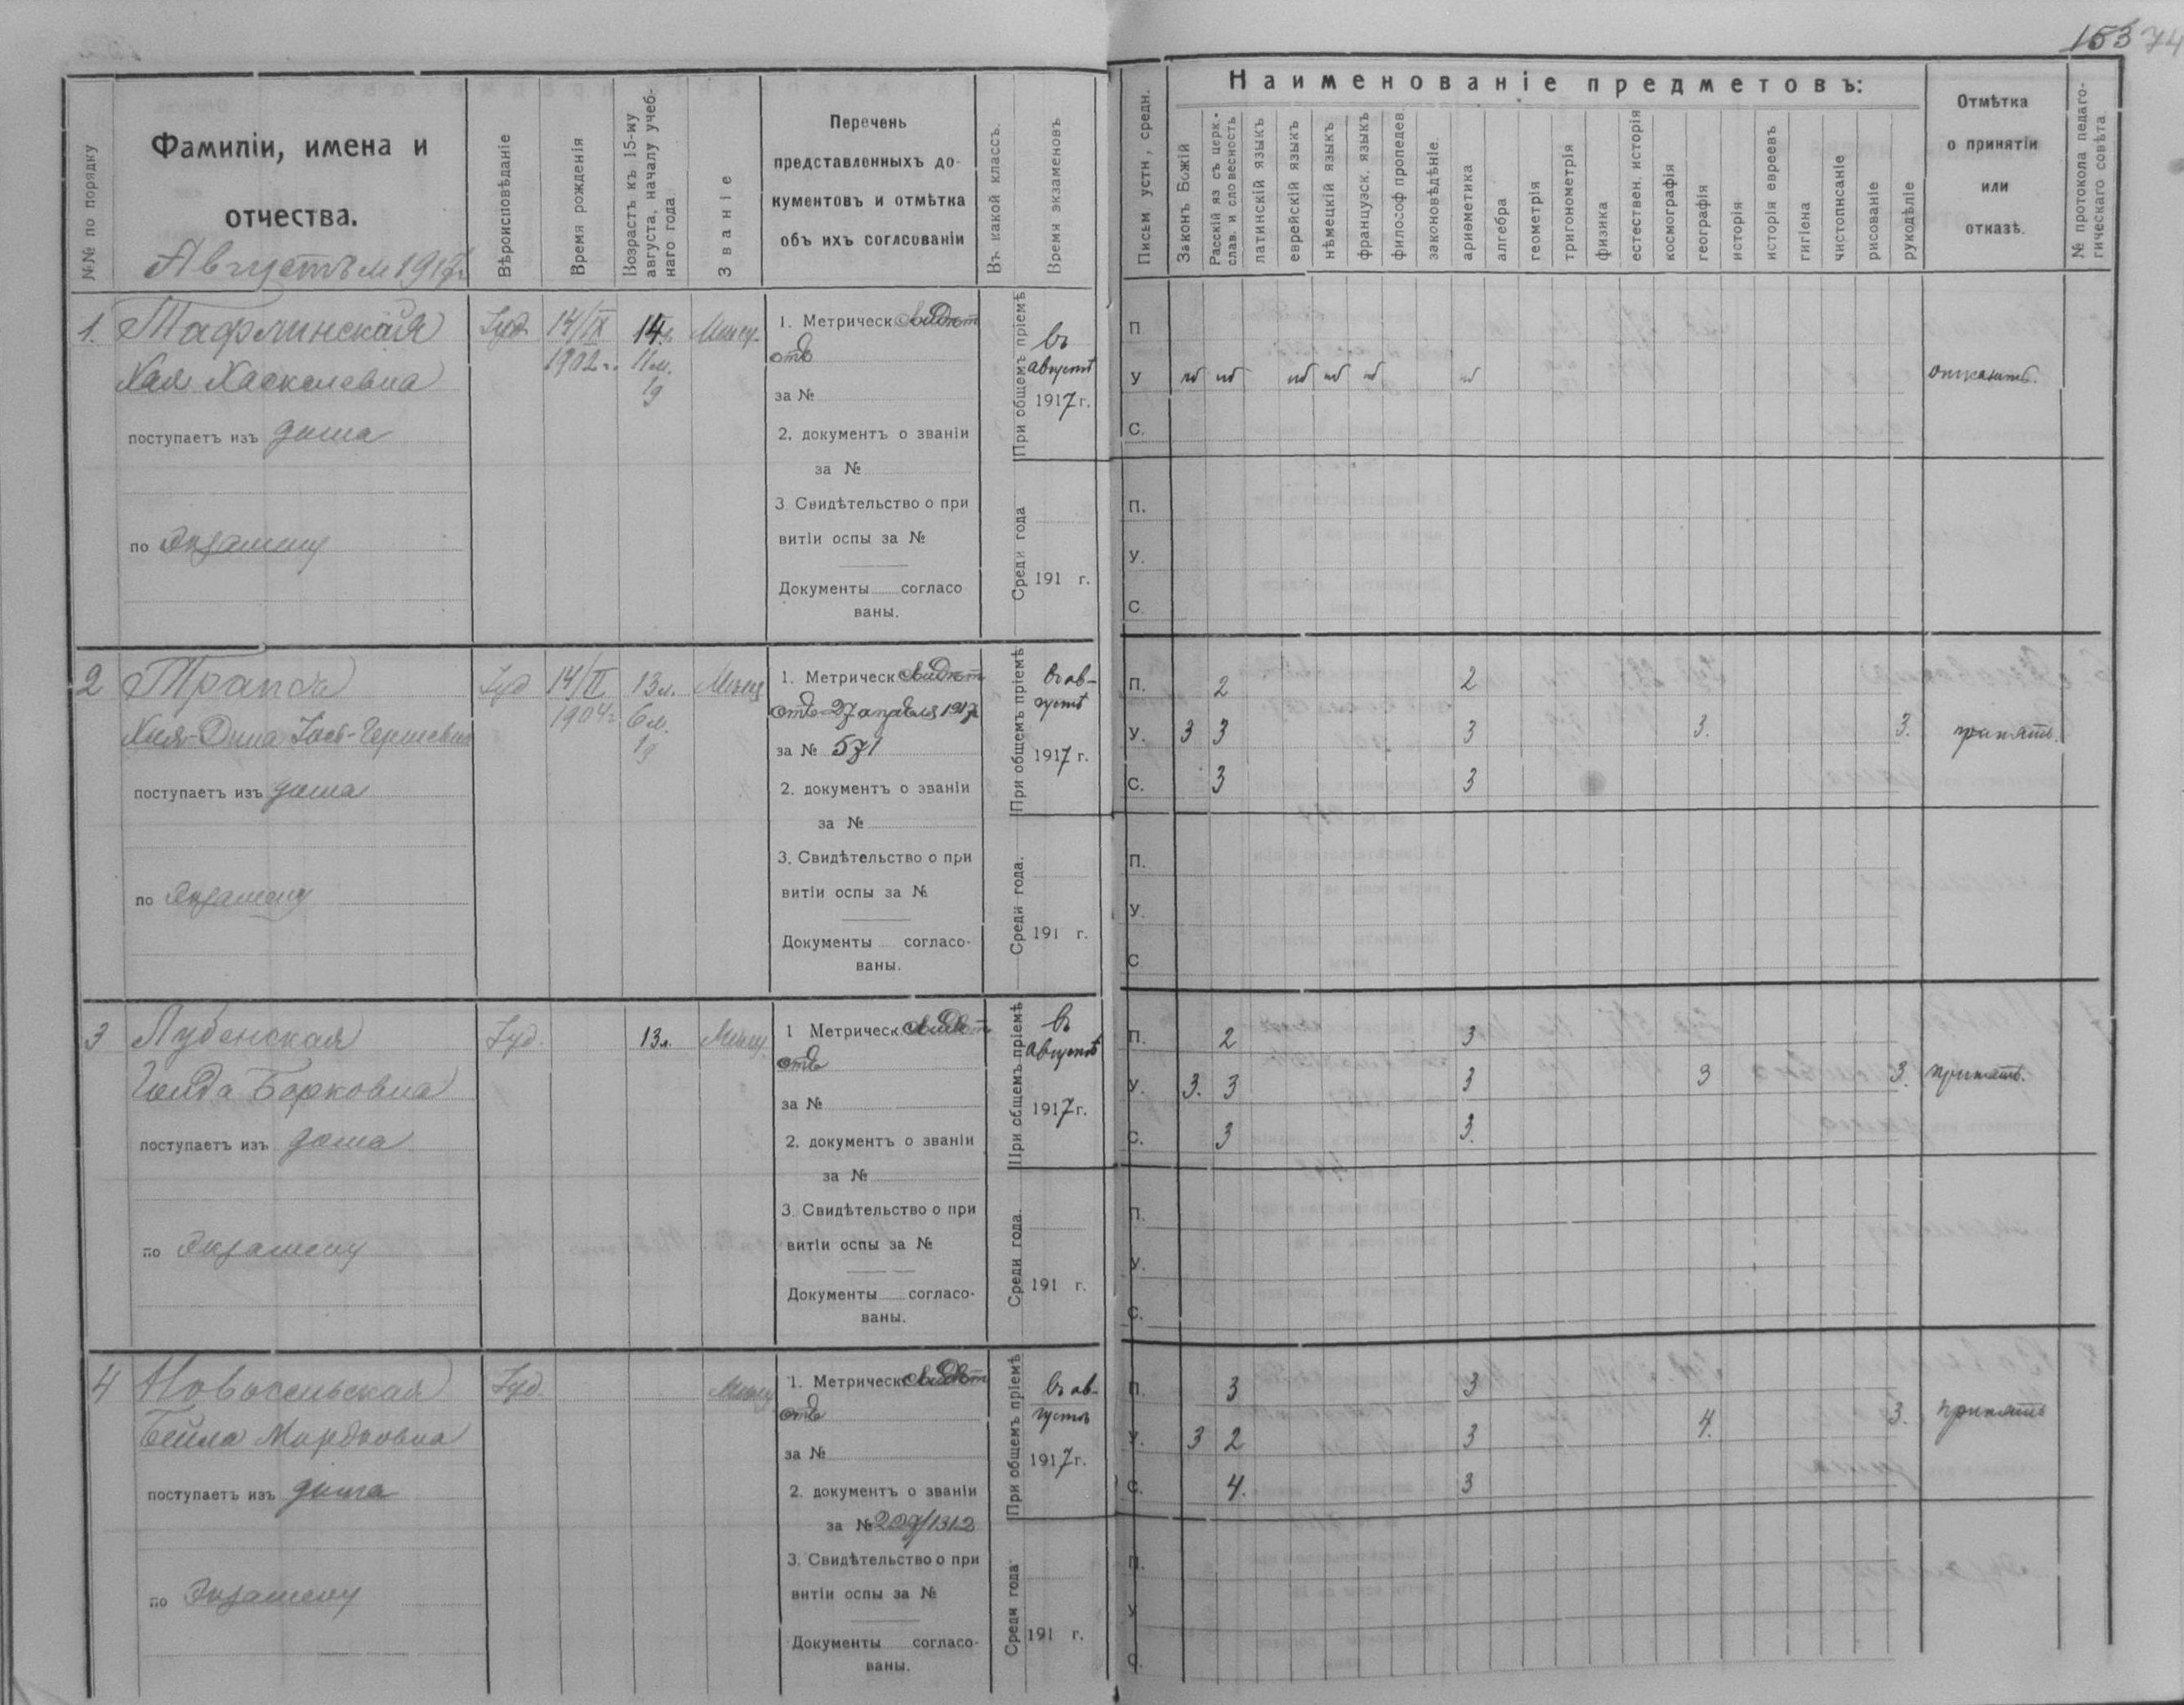 153 74
№№ по порядку
Фамиліи, имена и
отчества.
Августъ м 1917 г.
Вѣроисповѣданіе
Время рожденія
Возрастъ къ 15-му
августа, началу учеб-
наго года.
Званіе
Перечень
представленныхъ до-
кументовъ и отмѣтка
объ ихъ согласованіи
Въ какой классъ.
Время экзаменовъ
Письм устн, средн.
Наименованіе предметовъ:
Законъ Божій
Расскій яз съ церк.-
слав. и словесность
латинскій языкъ
еврейскій языкъ
нѣмецкій языкъ
французск. языкъ
философ пропедев
законовѣдѣніе.
ариѳметика
алгебра
геометрія
тригонометрія
физика
естествен. исторія
космографія
географія
исторія
исторія евреевъ
гигіена
чистописаніе
рисованіе
рукодѣліе
Отмѣтка
о принятіи
или
отказѣ.
№ протокола педаго-
гическаго совѣта.
1. Тафлинская
Хая Хаскелевна
поступаетъ изъ дома
по экзамену
Іуд. 14/IX 14 л. Мѣщ.
1902 г. 11 м.
1 д
1. Метрическ свидѣт
отъ
за №
2. документъ о званіи
за №
3. Свидѣтельство о при
витіи оспы за №
Документы согласо
ваны.
При общемъ пріемѣ
въ
августѣ
1917 г.
Среди года
191 г.
П
У нб нб нб нб нб нб
С.
отказать.
П.
У.
С.
2 Трапода
Хая-Дина Іось-Гершевна
поступаетъ изъ дома
по экзамену
Іуд 14/II 13 л. Мѣщ
1904 г. 6 м.
1 д
1. Метрическ свидѣт
отъ 27 апрѣля 1917
за № 571
2. документъ о званіи
за №
3. Свидѣтельство о при
витіи оспы за №
Документы согласо-
ваны.
При общемъ пріемѣ
въ ав-
густѣ
1917 г.
Среди года.
191 г.
П. 2 2
У. 3 3 3 3. 3.
С. 3 3
принять.
П.
У.
С
3 Лубенская
Гелда Борковна
поступаетъ изъ дома
по экзамену
Іуд. 13 л. Мѣщ.
1 Метрическ. свидѣт
отъ
за №
2. документъ о званіи
за №
3. Свидѣтельство о при
витіи оспы за №
Документы согласо-
ваны.
При общемъ пріемѣ
въ
августѣ
1917 г.
Среди года
191 г.
П. 2 3
У. 3. 3 3 3 3.
С. 3 3.
принять.
П.
У.
С.
4 Новосельская
Бейла Мордковна
поступаетъ изъ дома
по экзамену
Іуд. Мѣщ
1. Метрическ свидѣт
отъ
за №
2. документъ о званіи
за № 209/1312
3. Свидѣтельство о при
витіи оспы за №
Документы согласо-
ваны.
При общемъ пріемѣ
въ ав-
густѣ
1917 г.
Среди года
191 г.
П. 3 3
У. 3 2 3 4. 3.
С. 4. 3
принять
П.
У
С.